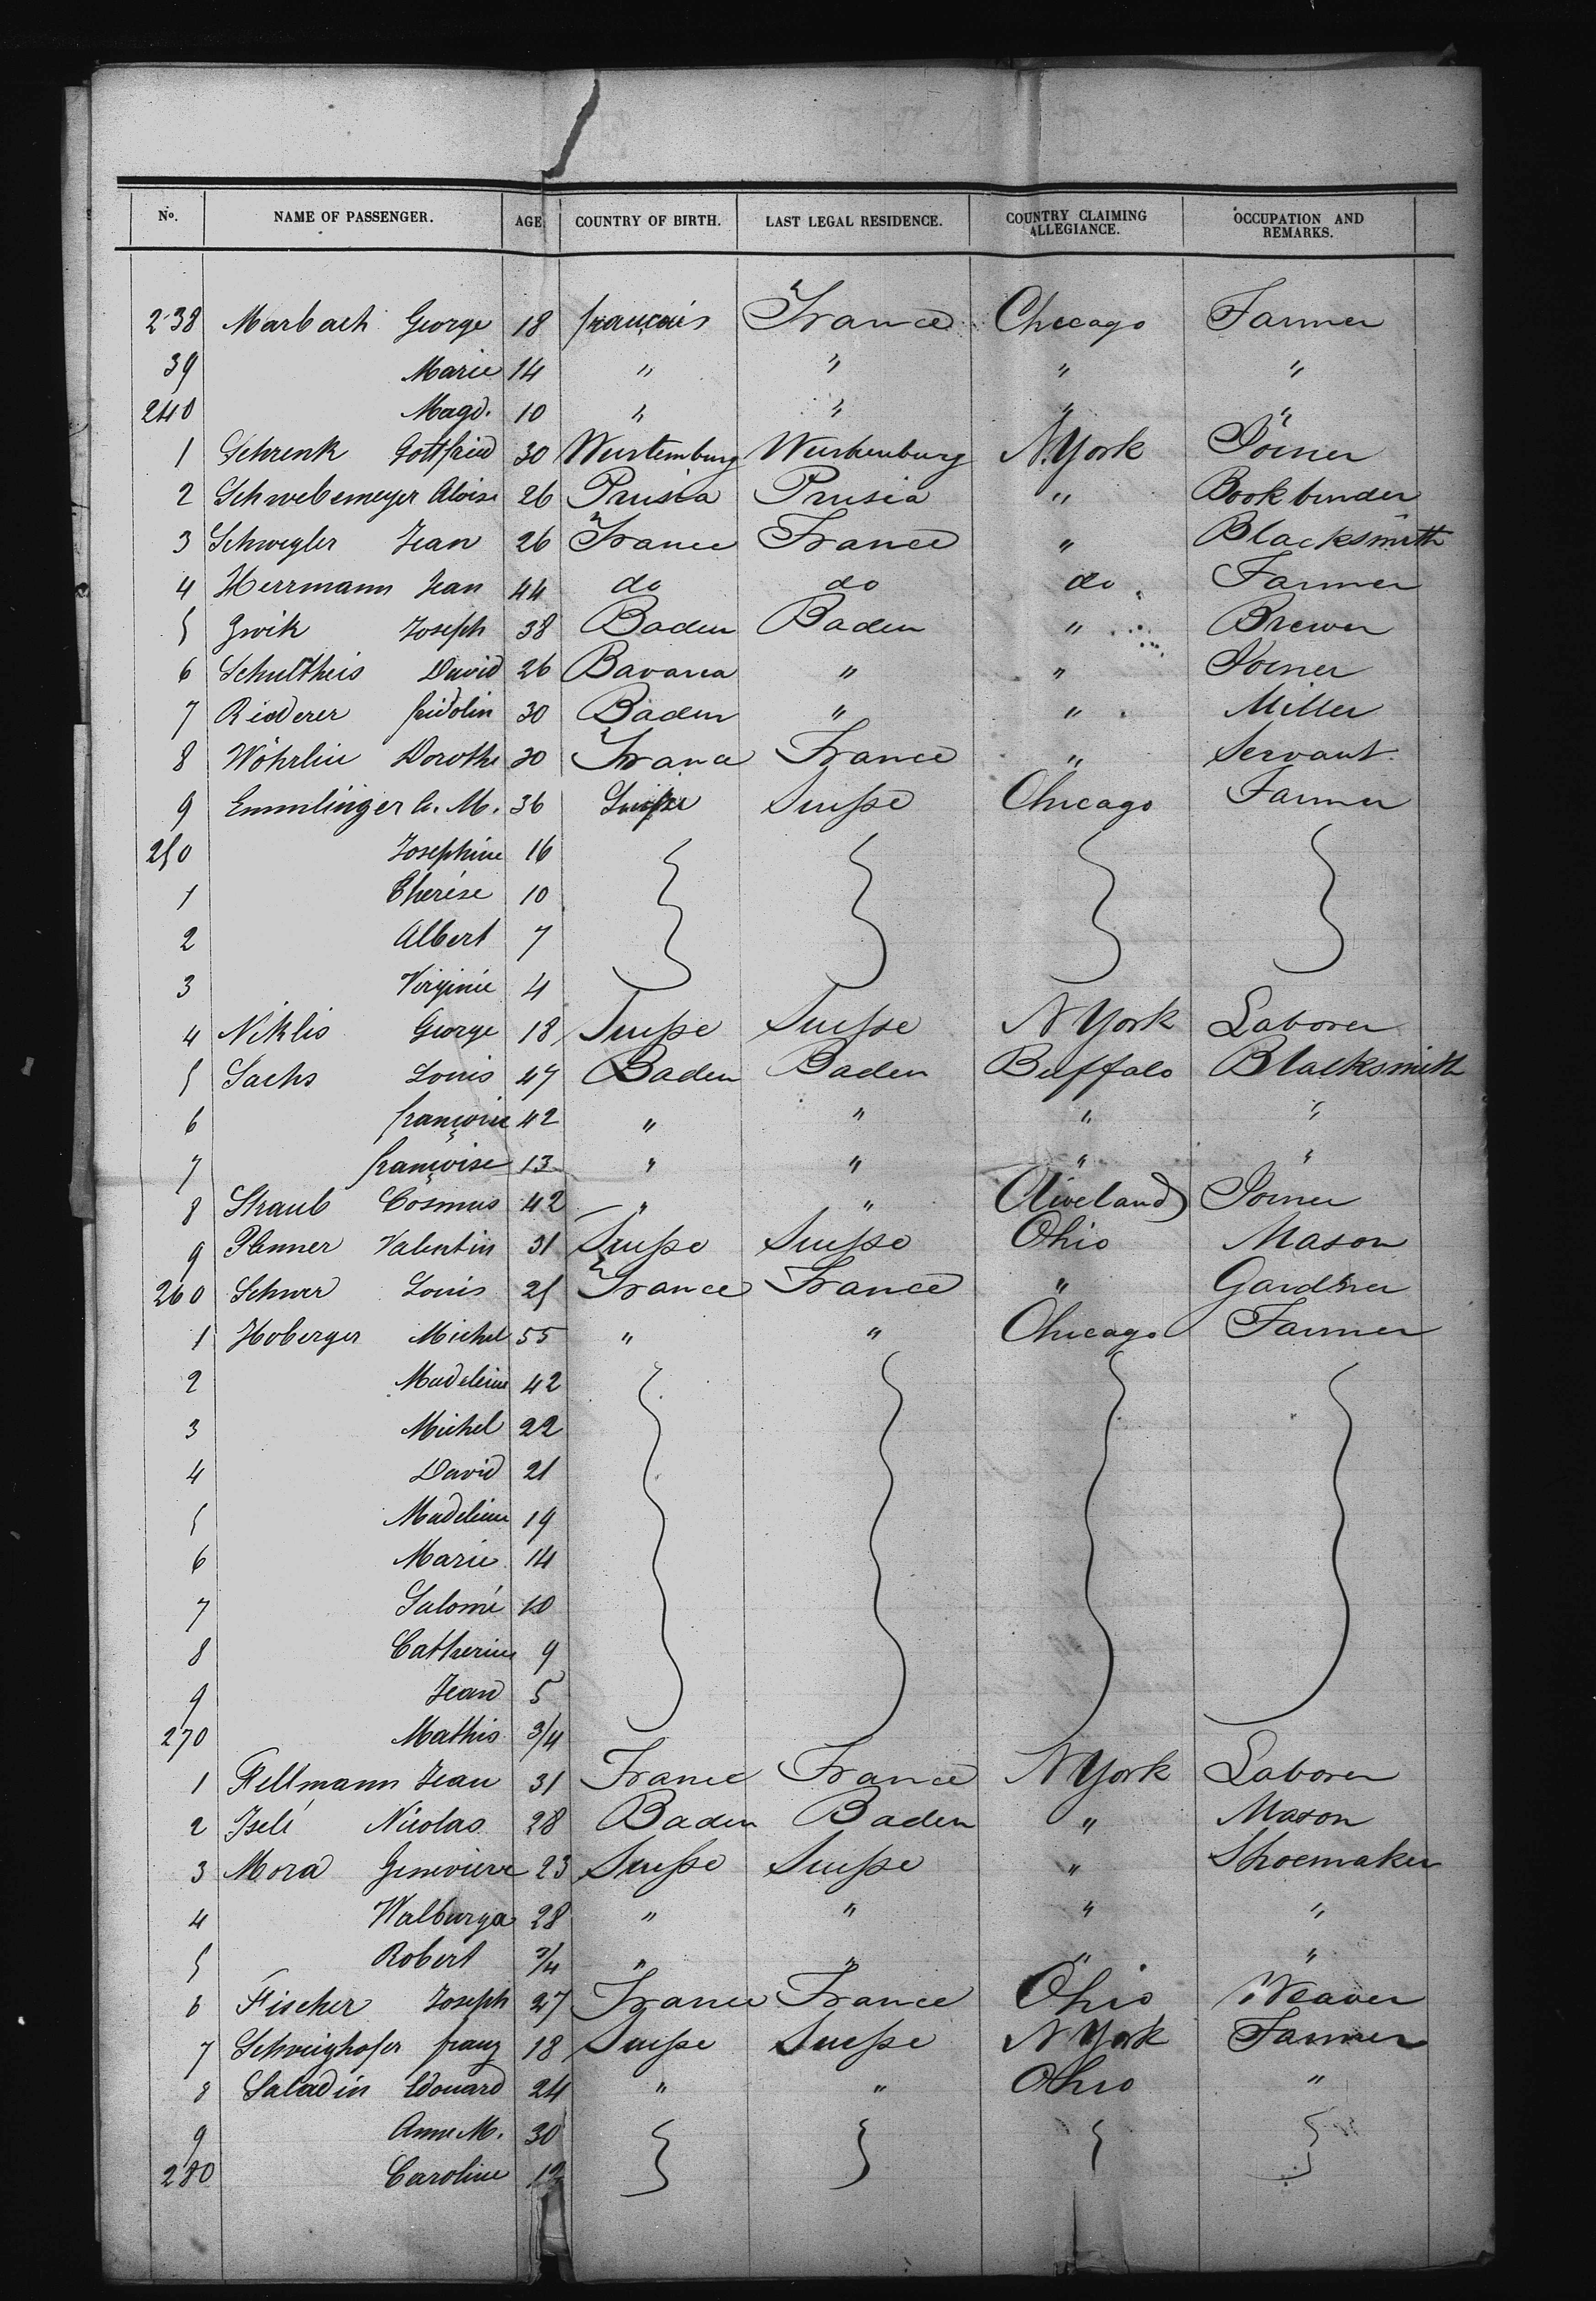 No. NAME OF PASSENGER. AGE COUNTRY OF BIRTH. LAST LEGAL RESIDENCE. COUNTRY CLAIMING ALLEGIANCE. OCCUPATION AND REMARKS.
238 Marbach George 18 français France Chicago Farmer
39 Marie 14 " " " "
240 Magd. 10 " " " "
1 Schrenk Gottfried 30 Wurtemburg Wurtenburg N.York Joiner
2 Schwebemeyer Alois 26 Prusia Prusia " Bookbinder
3 Schwegler Jean 26 France France " Blacksmith
4 Herrmann Jean 44 do do do Farmer
5 Zwik Joseph 38 Baden Baden " Brewer
6 Schultheis David 26 Bavaria " " Joiner
7 Riederer fridolin 30 Baden " " Miller
8 Wöhrlin Dorothe 30 France France " Servant
9 Emmlinger A. M. 36 Suisse Suisse Chicago Farmer
250 Josephine 16
1 Therése 10
2 Albert 7
3 Virginie 4
4 Niklis George 18 Suisse Suisse N York Laborer
5 Sachs Louis 47 Baden Baden Buffalo Blacksmith
6 françoise 42 " " " "
7 françoise 13 " " " "
8 Straub Cosmus 42 " " Cliveland Joiner
9 Planner Valentin 31 Suisse Suisse Ohio Mason
260 Schwer Louis 25 France France " Gardner
1 Hoberger Michel 55 " " Chicago Farmer
2 Madeleine 42
3 Michel 22
4 David 21
5 Madeleine 19
6 Marie 14
7 Salomé 10
8 Catherine 9
9 Jean 5
270 Mathis 3/4
1 Fellmann Jean 31 France France N York Laborer
2 Iseli Nicolas 28 Baden Baden " Mason
3 Mora Genevieve 23 Suisse Suisse " Shoemaker
4 Walburga 28 " " " "
5 Robert 3/4 " " " "
6 Fischer Joseph 27 France France Ohio Weaver
7 Schweighofer franz 18 Suisse Suisse N York Farmer
8 Saladin Edouard 24 " " Ohio "
9 Anne M. 30
280 Caroline 12